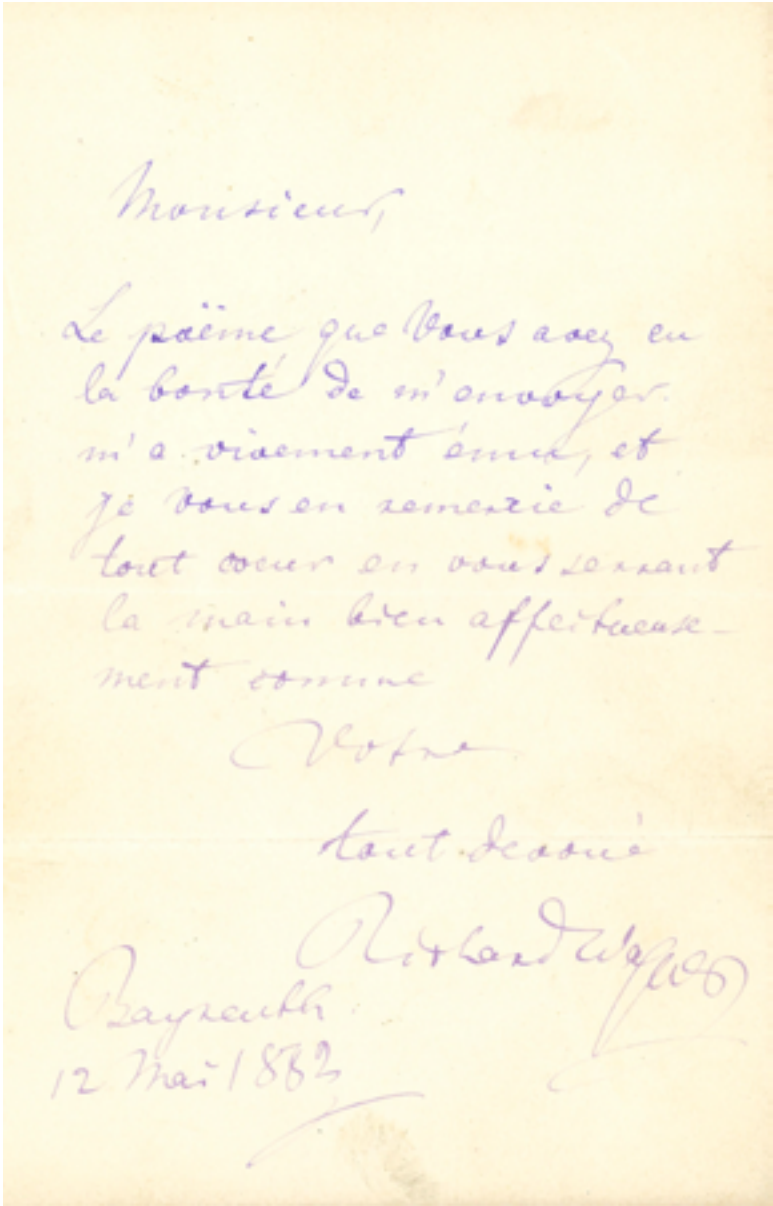 Monsieur,
Le poëme que Vous avez eu
la bonté de m'envoyer
m'a vivement ému, et
je Vous en remercie de
tout coeur en vous serrant
la main bien affectueuse-
ment comme
Votre
tout devoué
Richard Wagner
Bayreuth
12 Mai 1882